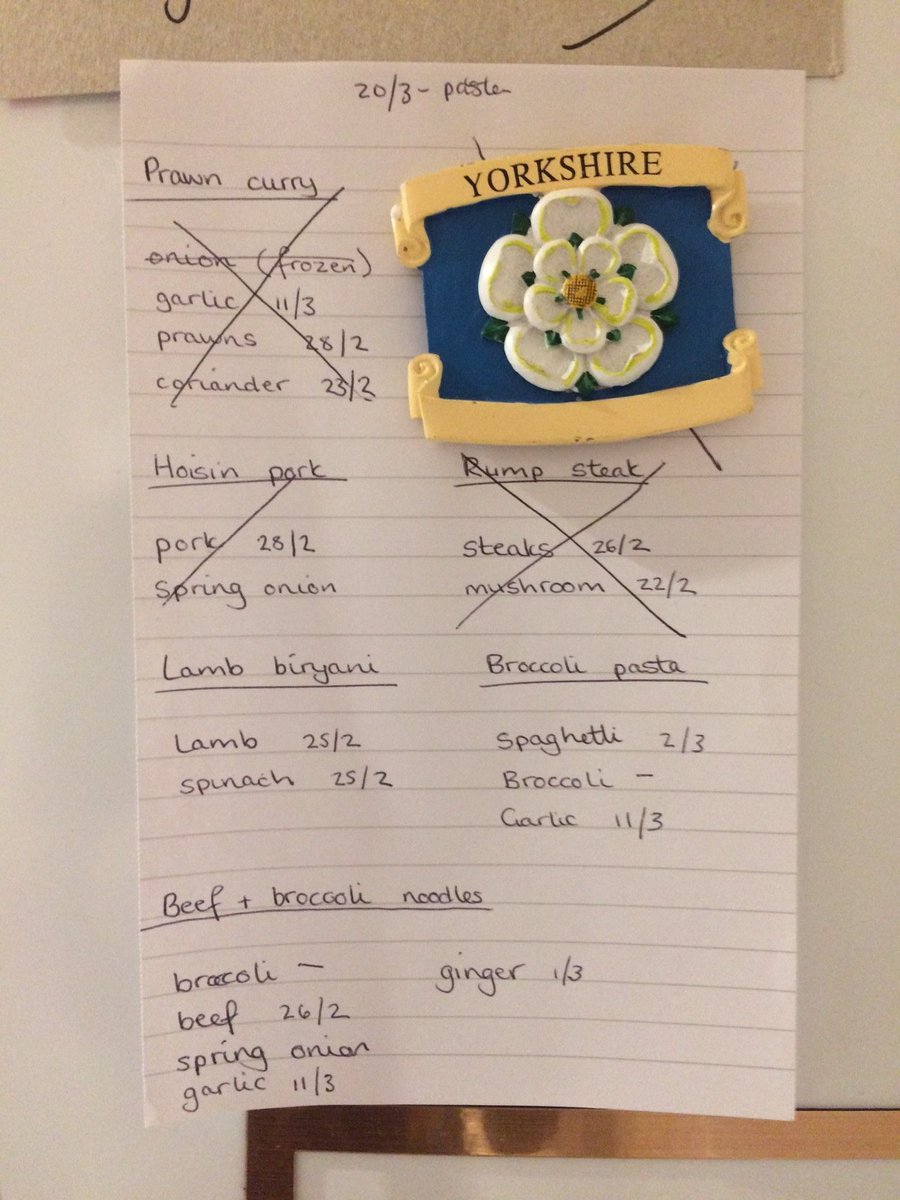 20/3 - pasta
YORKSHIRE
Prawn curry
onion (frozen)
garlic 11/3
prawns 28/2
coriander 23/2
Hoisin pork
pork 28/2
Spring onion
Rump steak
steaks 26/2
mushroom 22/2
Lamb biryani
Lamb 25/2
spinach 25/2
Broccoli pasta
Spaghetti 2/3
Broccoli –
Garlic 11/3
Beef + broccoli noodles
broccoli –
beef 26/2
spring onion
garlic 11/3
ginger 1/3